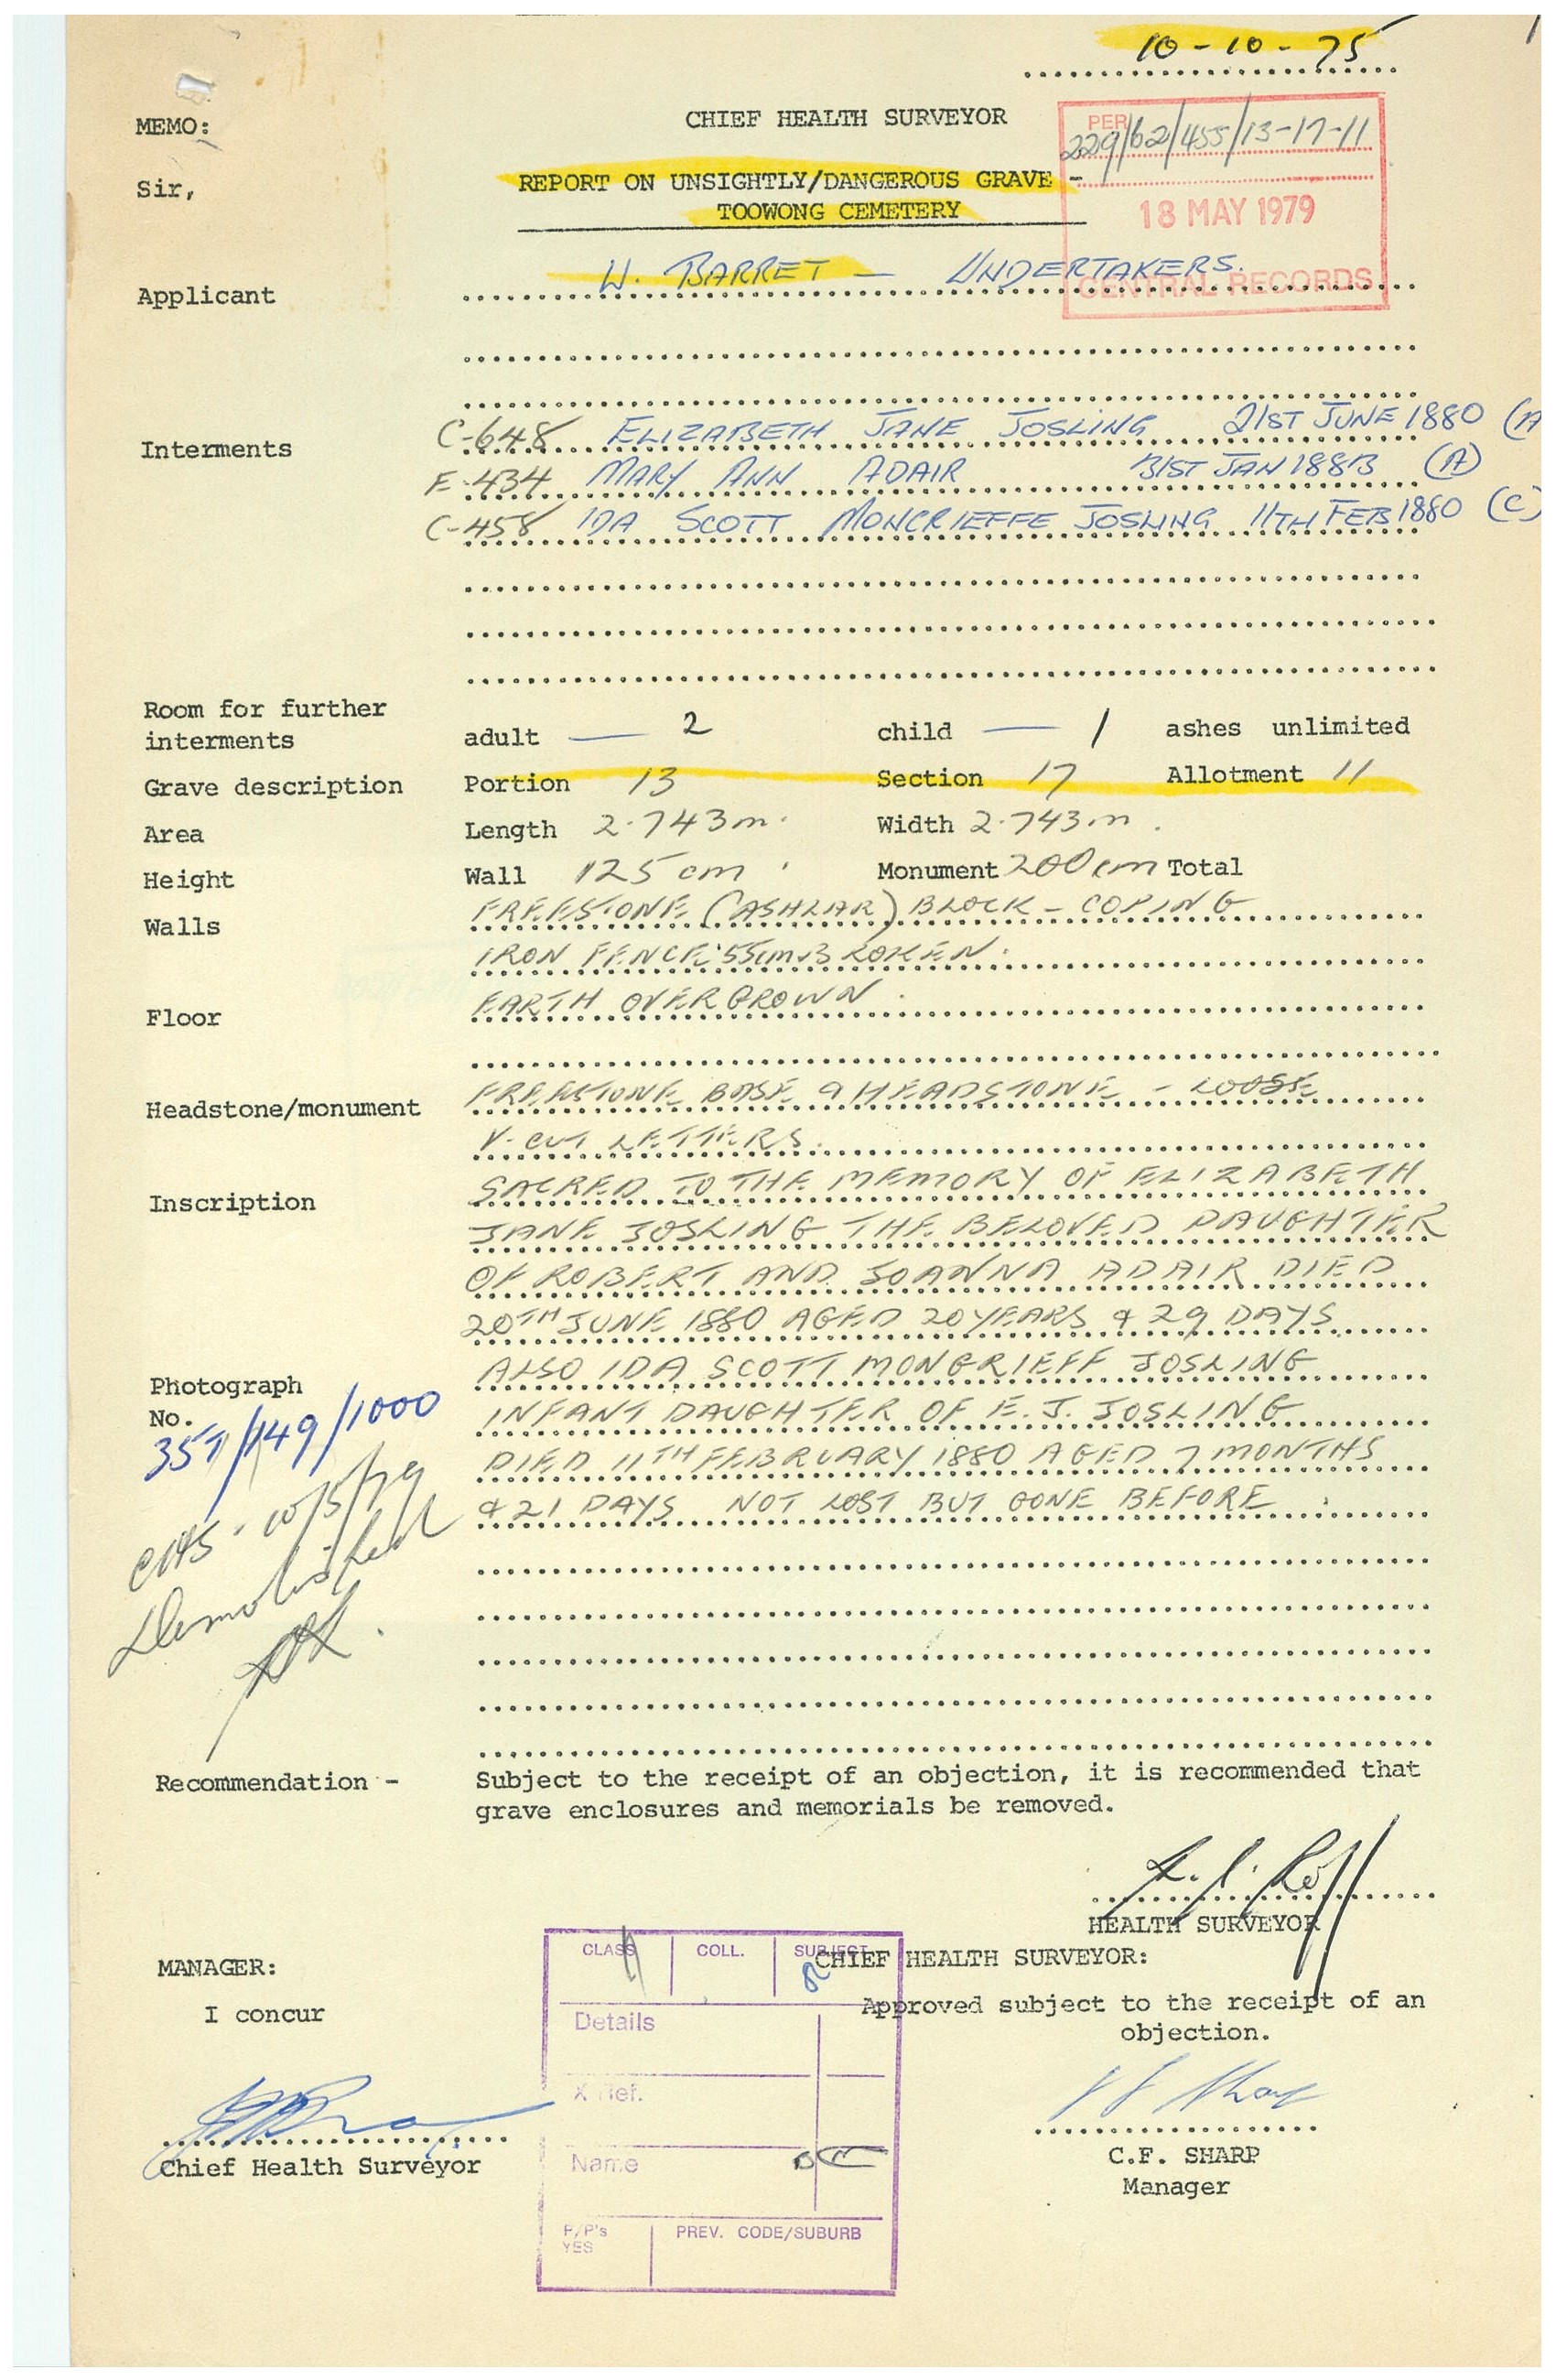 10-10-75
MEMO:
CHIEF HEALTH SURVEYOR
PER
229/62/455/13-17-11
Sir,
REPORT ON UNSIGHTLY/DANGEROUS GRAVE -
TOOWONG CEMETERY
18 MAY 1979
CENTRAL RECORDS
Applicant W. BARRET — UNDERTAKERS.
Interments C-648 ELIZABETH JANE JOSLING 21ST JUNE 1880 (A
E-434 MARY ANN ADAIR 31ST JAN 1883 (A)
C-458 IDA SCOTT MONCRIEFFE JOSLING 11TH FEB 1880 (C)
Room for further
interments adult — 2 child — 1 ashes unlimited
Grave description Portion 13 Section 17 Allotment 11
Area Length 2.743m. Width 2.743m.
Height Wall 125cm Monument 200cm Total
Walls FREESTONE (ASHLAR) BLOCK - COPING
IRON FENCE 55cm BROKEN.
Floor EARTH OVERGROWN.
Headstone/monument FREESTONE BASE & HEADSTONE - LOOSE
V-CUT LETTERS.
Inscription SACRED TO THE MEMORY OF ELIZABETH
JANE JOSLING THE BELOVED DAUGHTER
OF ROBERT AND JOANNA ADAIR DIED
20TH JUNE 1880 AGED 20 YEARS & 29 DAYS
ALSO IDA SCOTT MONGRIEFF JOSLING
Photograph
No.
357/149/1000
INFANT DAUGHTER OF E. J. JOSLING
DIED 11TH FEBRUARY 1880 AGED 7 MONTHS
& 21 DAYS NOT LOST BUT GONE BEFORE.
CHS - 10/5/79
Demolished
Recommendation - Subject to the receipt of an objection, it is recommended that
grave enclosures and memorials be removed.
HEALTH SURVEYOR
MANAGER:
CHIEF HEALTH SURVEYOR:
I concur
Approved subject to the receipt of an
objection.
Chief Health Surveyor
C.F. SHARP
Manager
CLASS COLL. SUBJECT
Details
X Ref.
Name
P/P's
YES
PREV. CODE/SUBURB